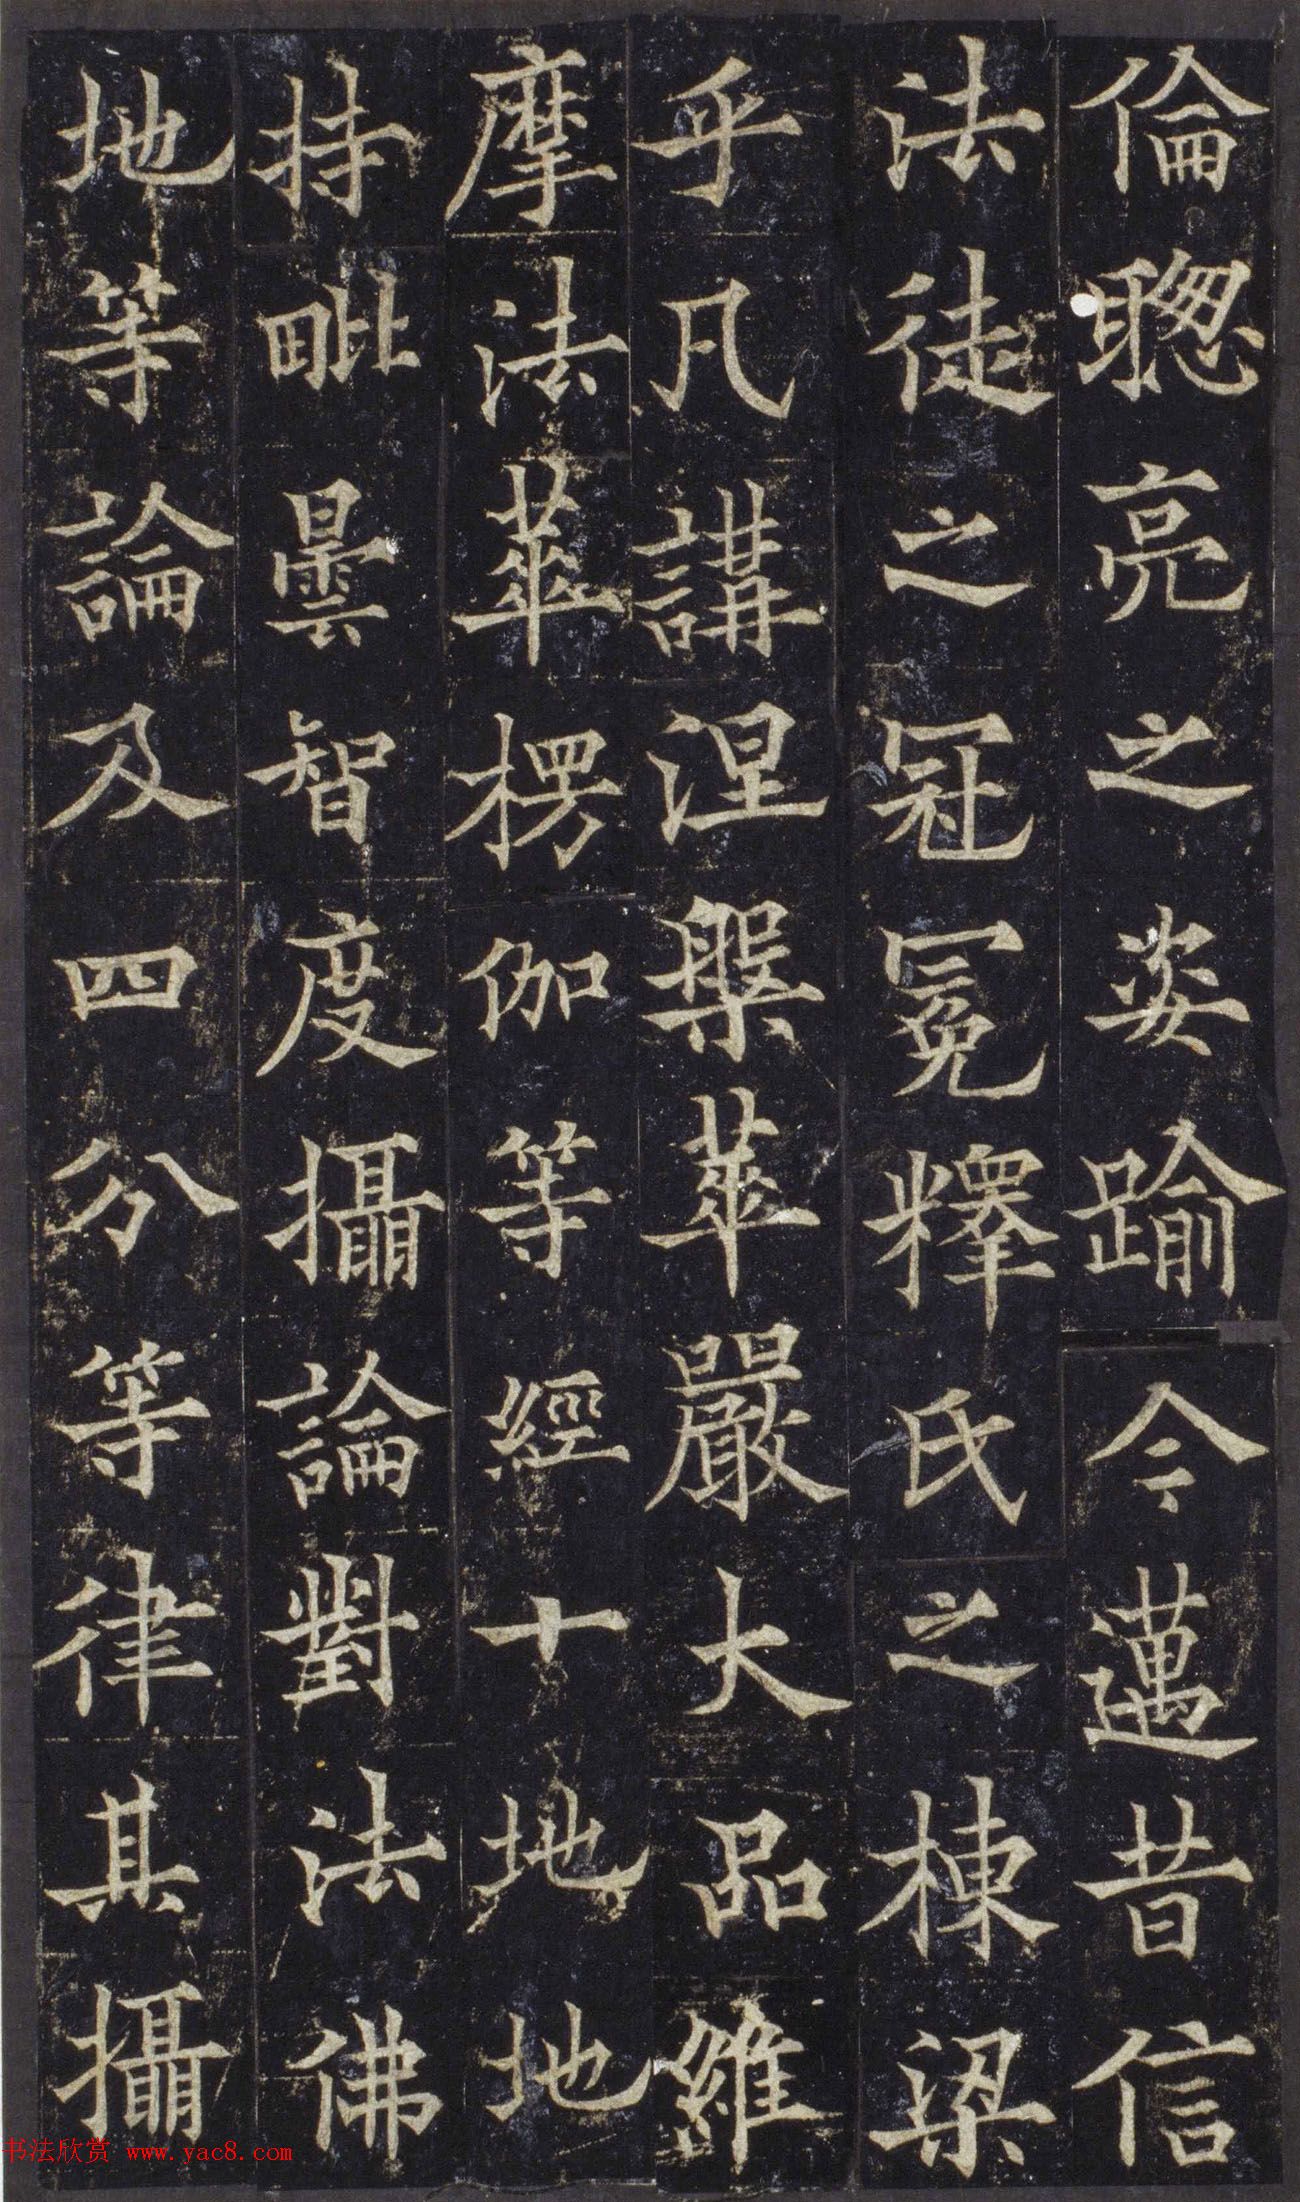 倫聦亮之姿踰今邁昔信
法徒之冠冕釋氏之棟梁
乎凡講涅槃華嚴大品維
摩法華楞伽等經十地地
持毗曇智度攝論對法佛
地等論及四分等律其攝
书法欣赏 www.yac8.com